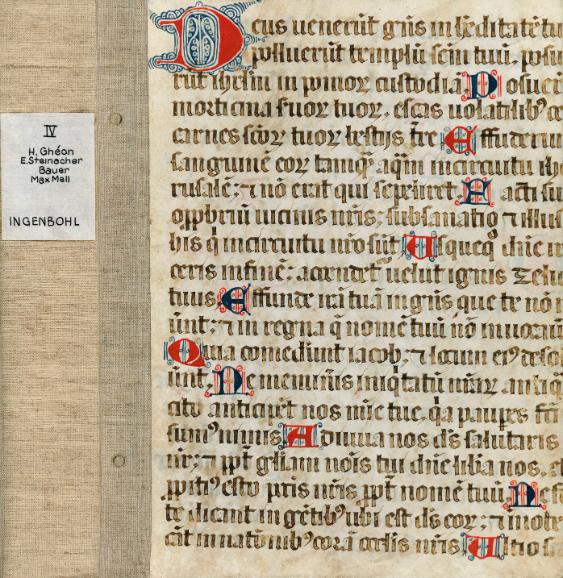 IV
H. Ghéon
E. Steinacher
Bauer
Max Mell
INGENBOHL
Deus uenerūt gētes in h̄editatē tu
polluerūt templū sc̄m tuū, posu
rūt ihrl̄m in pomoꝝ custodiā Posuer
morticina suoꝝ tuoꝝ, escas uolatilibꝰ ce
carnes sc̄oꝝ tuoꝝ bestijs tr̄e Effuderun
sanguinē eoꝝ tamqͣ aqͣm in circuitu ih
rusalē: ⁊ nō erat qui sepeliret. Facti su
opprobriū uicinis nr̄is: subsanatio ⁊ illus
his qͥ in circuitu nr̄o sūt Usquequo dn̄e ir
ceris in finē: accendet uelut ignis Zelu
tuus Effunde irā tuā in gētes que te nō n
ūnt: ⁊ in regna q̄ nomē tuū nō inuocaū
Quia comederūt iacob: ⁊ locum eiꝰ desol
ūnt. Ne memineris iniqͥtatū nr̄aꝝ antiqͣ
cito anticipēt nos mīe tue, qͥa paupes fc̄i
sumꝰ nimis Adiuua nos ds̄ salutaris
nr̄: ⁊ ppt̄ gl̄iam nōis tui dn̄e libͣa nos, et
ppitiꝰ esto pctis nr̄is ppt̄ nomē tuū Ne f
te dicant in gētibꝰ ubi est ds̄ eoꝝ: ⁊ inote
cāt in natōnibꝰ corā oculis nr̄is Ultio s